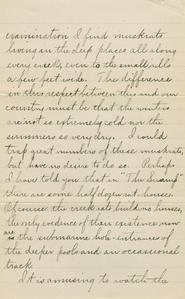 examination I find muskrats
living in the deep places all along
every creek, even to the small rills
a few feet wide. The difference
in this respect between this and our
country must be that the winters
are not so extremely cold nor the
summers so very dry. I could
trap great numbers of these muskrats,
but have no desire to do so. Perhaps
I have told you that in "The Swamp"
there are some half dozen rat houses.
Of course the creek rats build no houses,
the only evidence of their existence now
are is the submarine hole-entrances
of the deeper pools and an occasional
track.
It is amusing to watch the